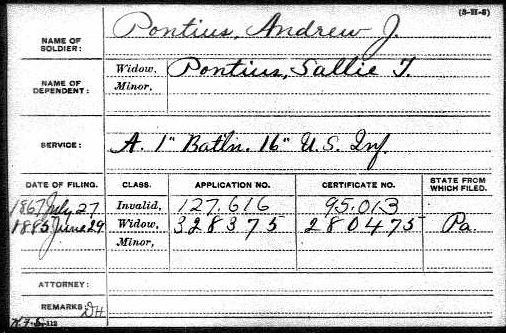 (3-H-8)
NAME OF SOLDIER: Pontius, Andrew J.
NAME OF DEPENDENT: Widow, Pontius, Sallie T.
Minor,
SERVICE: A. 1" Batln. 16" U.S. Inf.
DATE OF FILING. CLASS. APPLICATION NO. CERTIFICATE NO. STATE FROM WHICH FILED.
1867 July 27 Invalid, 127.616 95.013
1885 June 29 Widow, 328375 280475 Pa
Minor,
ATTORNEY:
REMARKS: DH